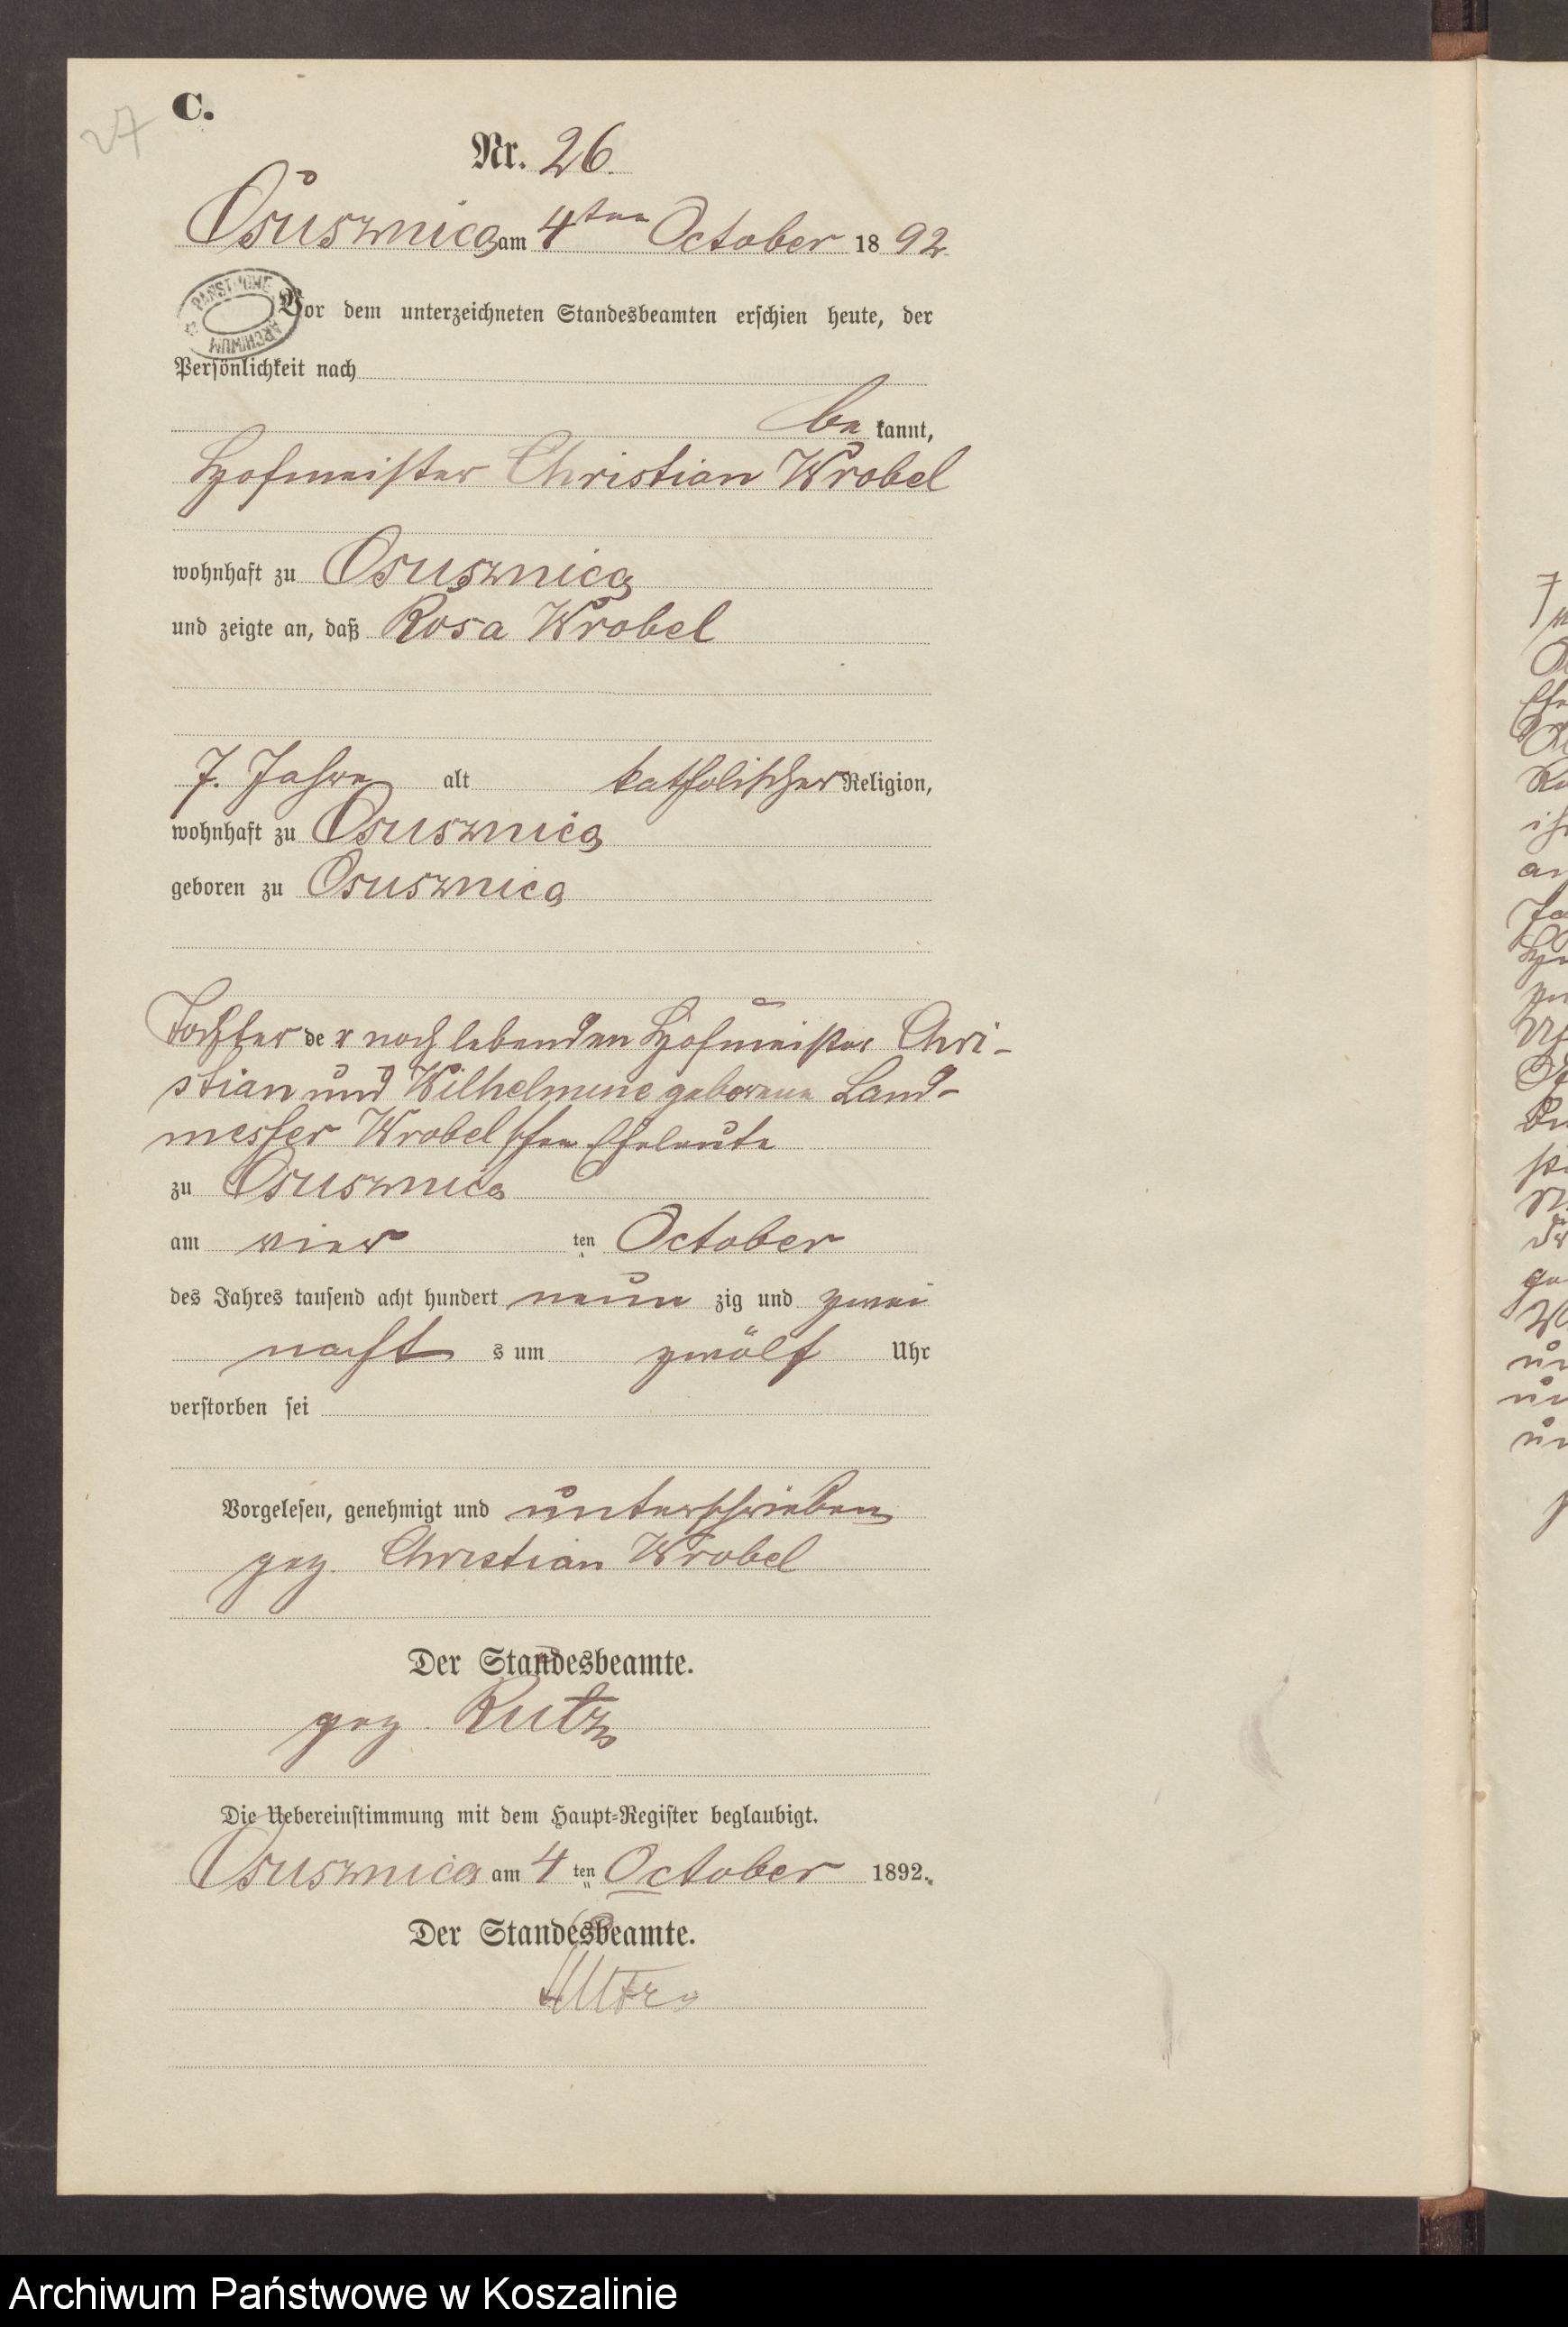 27
C.
Nr. 26.
Osusznica am 4ten October 1892
PAŃSTWOWE ARCHIWUM
Vor dem unterzeichneten Standesbeamten erschien heute, der
Persönlichkeit nach
be kannt,
Hofmeister Christian Wrobel
wohnhaft zu Osusznica
und zeigte an, daß Rosa Wrobel
7. Jahre alt katholischer Religion,
wohnhaft zu Osusznica
geboren zu Osusznica
Tochter der noch lebenden Hofmeister Chri-
stian und Wilhelmine geborene Land-
messer Wrobelschen Eheleute
zu Osusznica
am vier ten October
des Jahres tausend acht hundert neun zig und zwei
nacht s um zwölf Uhr
verstorben sei
Vorgelesen, genehmigt und unterschrieben
gez. Christian Wrobel
Der Standesbeamte.
gez. Rutz
Die Uebereinstimmung mit dem Haupt-Register beglaubigt.
Osusznica am 4 ten October 1892.
Der Standesbeamte.
Archiwum Państwowe w Koszalinie